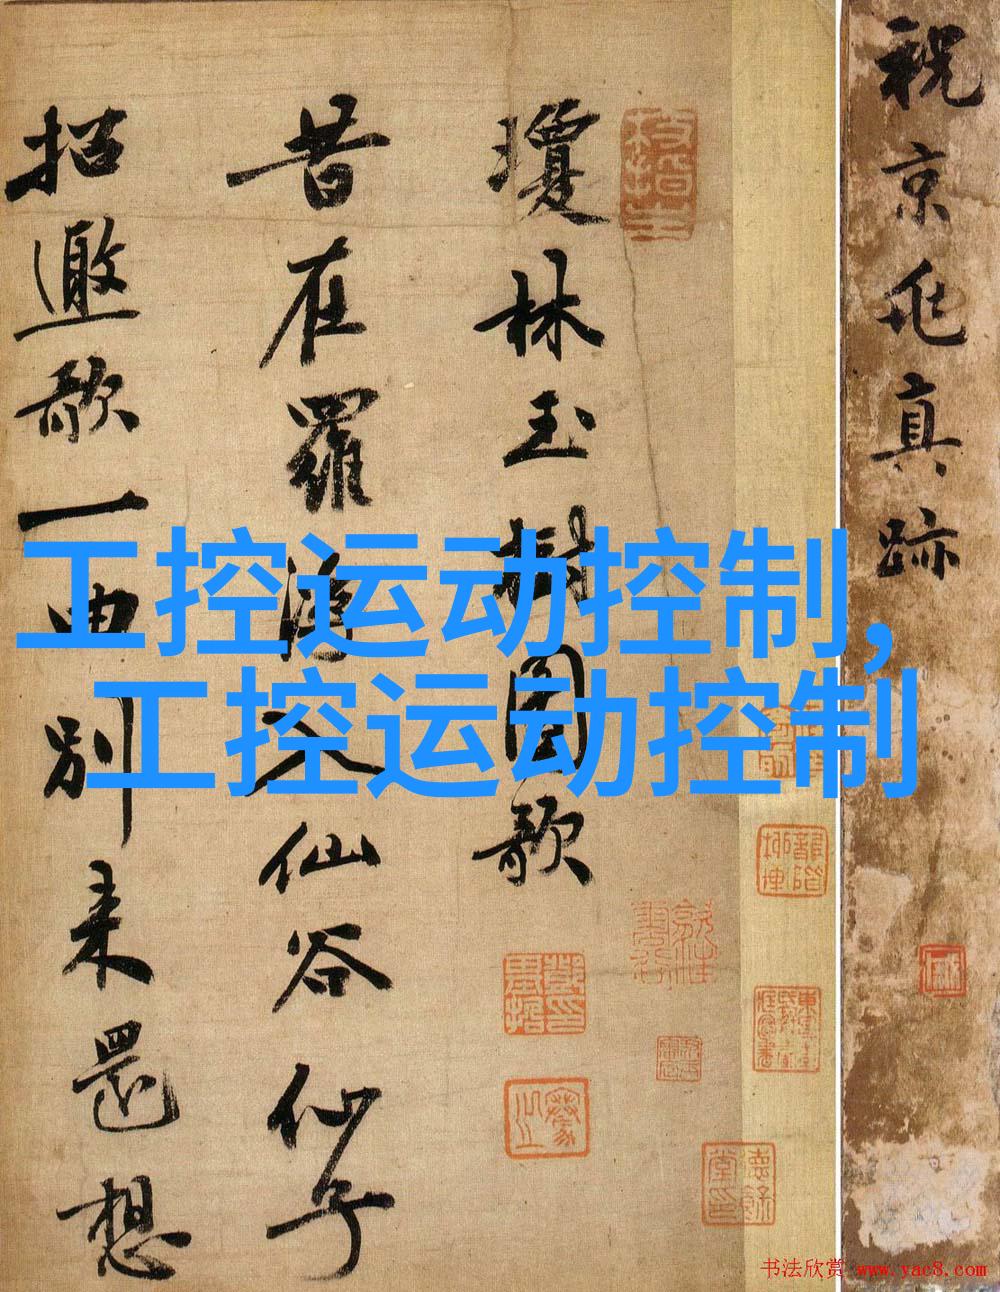 祝京兆真跡
瓊林玉樹圖歌
昔在羅浮入仙谷仙子
招邀歌一曲別来還想
工控运动控制,
工控运动控制
书法欣赏 www.yac8.com